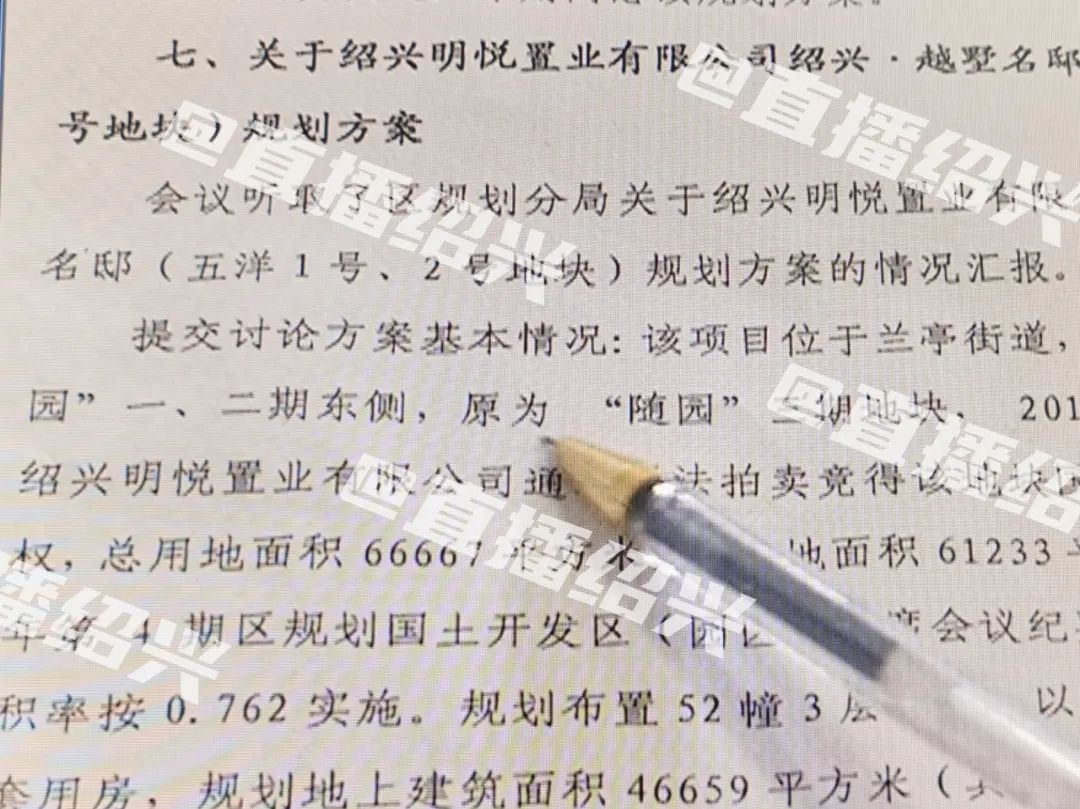 七、关于绍兴明悦置业有限公司绍兴·越墅名邸
号地块）规划方案
会议听取了区规划分局关于绍兴明悦置业有限
名邸（五洋1号、2号地块）规划方案的情况汇报。
提交讨论方案基本情况：该项目位于兰亭街道，
园”一、二期东侧，原为“随园”三期地块，201
绍兴明悦置业有限公司通 法拍卖竞得该地块
权，总用地面积66667平方米 地面积61233
年第4期区规划国土开发区（园区 席会议纪
积率按0.762实施。规划布置52幢3层 以
套用房，规划地上建筑面积46659平方米（
@直播绍兴
@直播绍兴
@直播绍兴
@直播绍兴
播绍兴